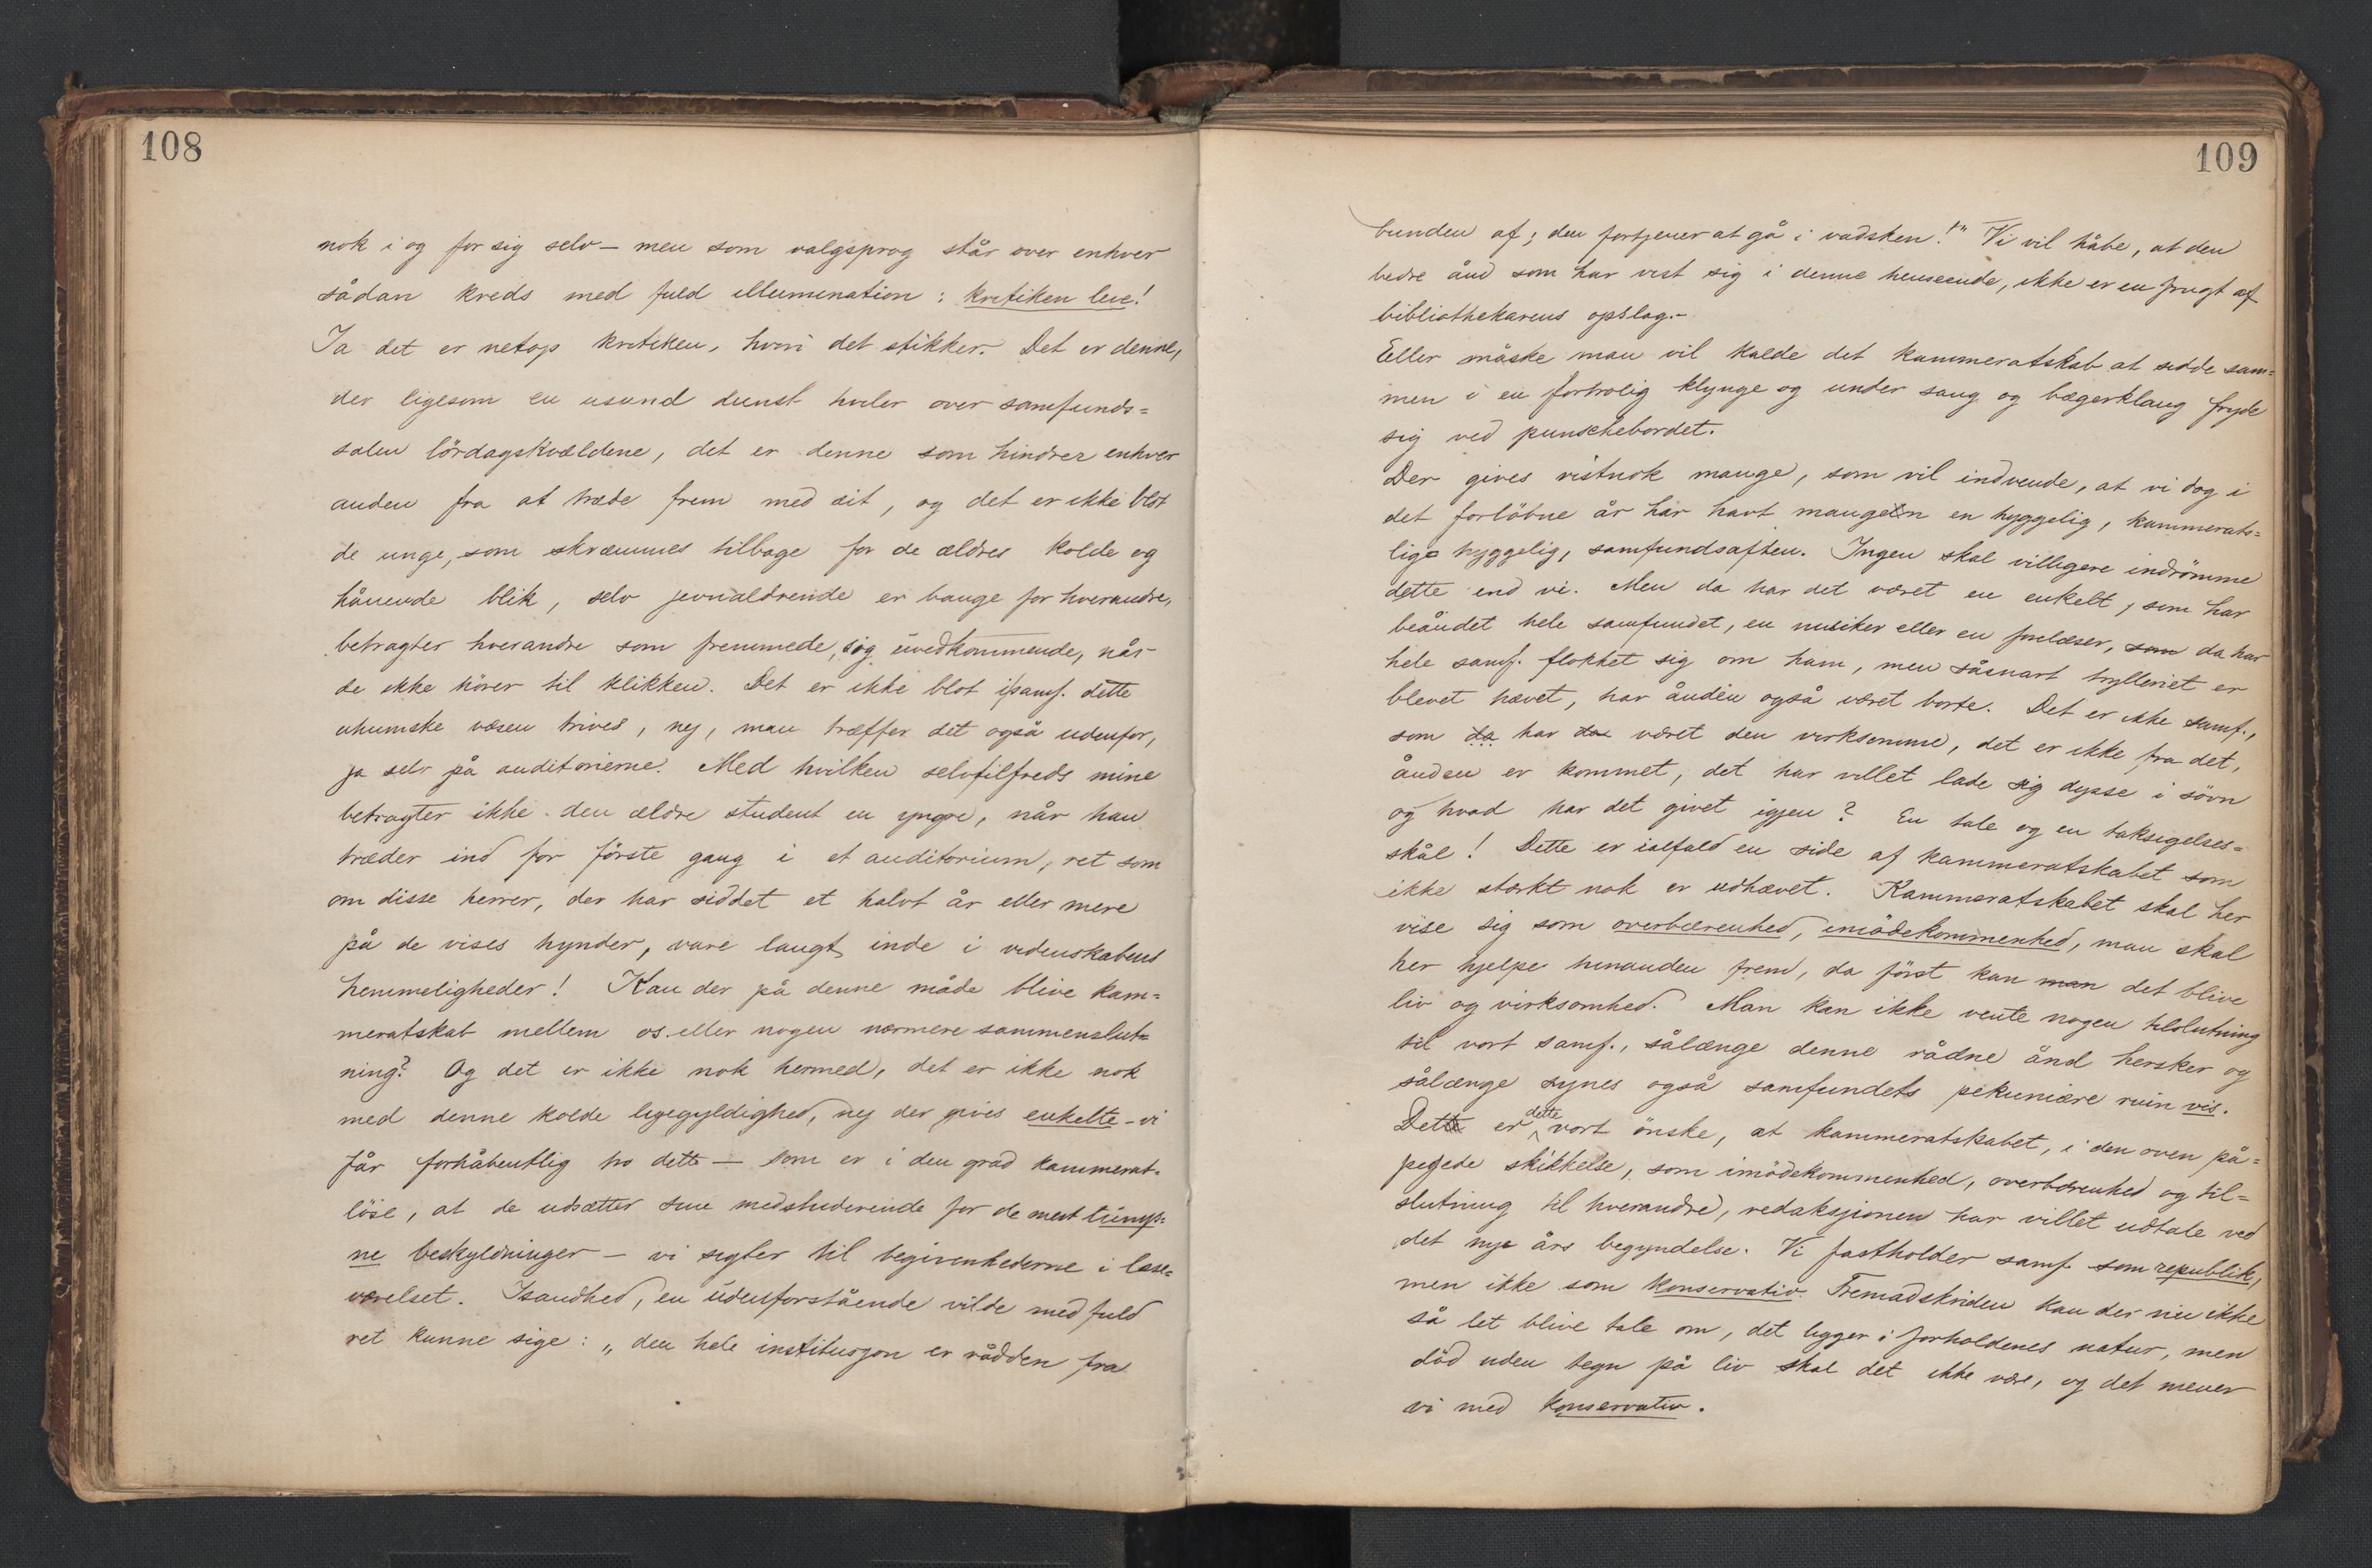 108
nok i og for sig selv – men som valgsprog står over enhver
sådan kreds med fuld illumination: kritiken leve!
Ja det er netop kritiken, hvori det stikker. Det er denne,
der ligesom en usund dunst hviler over samfunds=
salen lördagskvældene, det er denne som hindrer enhver
anden fra at træde frem med sit, og det er ikke blot
de unge, som skræmmes tilbage for de ældres kolde og
hånende blik, selv jevnaldrende er bange for hverandre,
betragter hverandre som fremmede, og uvedkommende, når
de ikke hörer til klikken. Det er ikke blot i samf. dette
uhumske væsen trives, nej, man træffer det også udenfor,
ja selv på auditorierne. Med hvilken selvtilfreds mine
betragter ikke den ældre student en yngre, når han
træder ind for förste gang i et auditorium, ret som
om disse herrer, der har siddet et halvt år eller mere
på de vises hynder, vare langt inde i videnskabens
hemmeligheder! Kan der på denne måde blive kam=
meratskab mellem os eller nogen nærmere sammenslut=
ning? Og det er ikke nok hermed, det er ikke nok
med denne kolde ligegyldighed, nej der gives enkelte – vi
får forhåbentlig tro dette – som er i den grad kammerat=
löse, at de udsætter sine medstuderende for de mest lump=
ne beskyldninger – vi sigter til begivenhederne i læse=
værelset. Isandhed, en udenforstående vilde med fuld
ret kunne sige: „den hele institusjon er rådden fra
109
bunden af; den fortjener at gå i vadsken!" Vi vil håbe, at den
bedre ånd som har vist sig i denne henseende, ikke er en frugt af
bibliothekarens opslag.–
Eller måske man vil kalde det kammeratskab at sidde sam=
men i en fortrolig klynge og under sang og bægerklang fryde
sig ved punschebordet.
Der gives vistnok mange, som vil indvende, at vi dog i
det forlöbne år har havt mangen en hyggelig, kammerats=
lig hyggelig, samfundsaften. Ingen skal villigere indrömme
dette end vi. Men da har det været en enkelt, som har
beåndet hele samfundet, en musiker eller en forelæser, som da har
hele samf. flokket sig om ham, men såsnart trylleriet er
blevet hævet, har ånden også været borte. Det er ikke samf.,
som da har da været den virksomme, det er ikke fra det,
ånden er kommet, det har villet lade sig dysse i sövn
og hvad har det givet igjen? En tale og en taksigelses=
skål! Dette er ialfald en side af kammeratskabet som
ikke stærkt nok er udhævet. Kammeratskabet skal her
vise sig som overbærenhed, imödekommenhed, man skal
her hjelpe hinanden frem, da först kan man det blive
liv og virksomhed. Man kan ikke vente nogen tilslutning
til vort samf., sålænge denne rådne ånd hersker og
sålænge synes også samfundets pekuniære ruin vis.
Dette er dette vort önske, at kammeratskabet, i den oven på=
pegede skikkelse, som imödekommenhed, overbærenhed og til=
slutning til hverandre, redaksjonen har villet udtale ved
det nye års begyndelse. Vi fastholder samf. som republik,
men ikke som konservativ. Fremadskriden kan der nu ikke
så let blive tale om, det ligger i forholdenes natur, men
död uden tegn på liv skal det ikke være, og det mener
vi med konservativ.